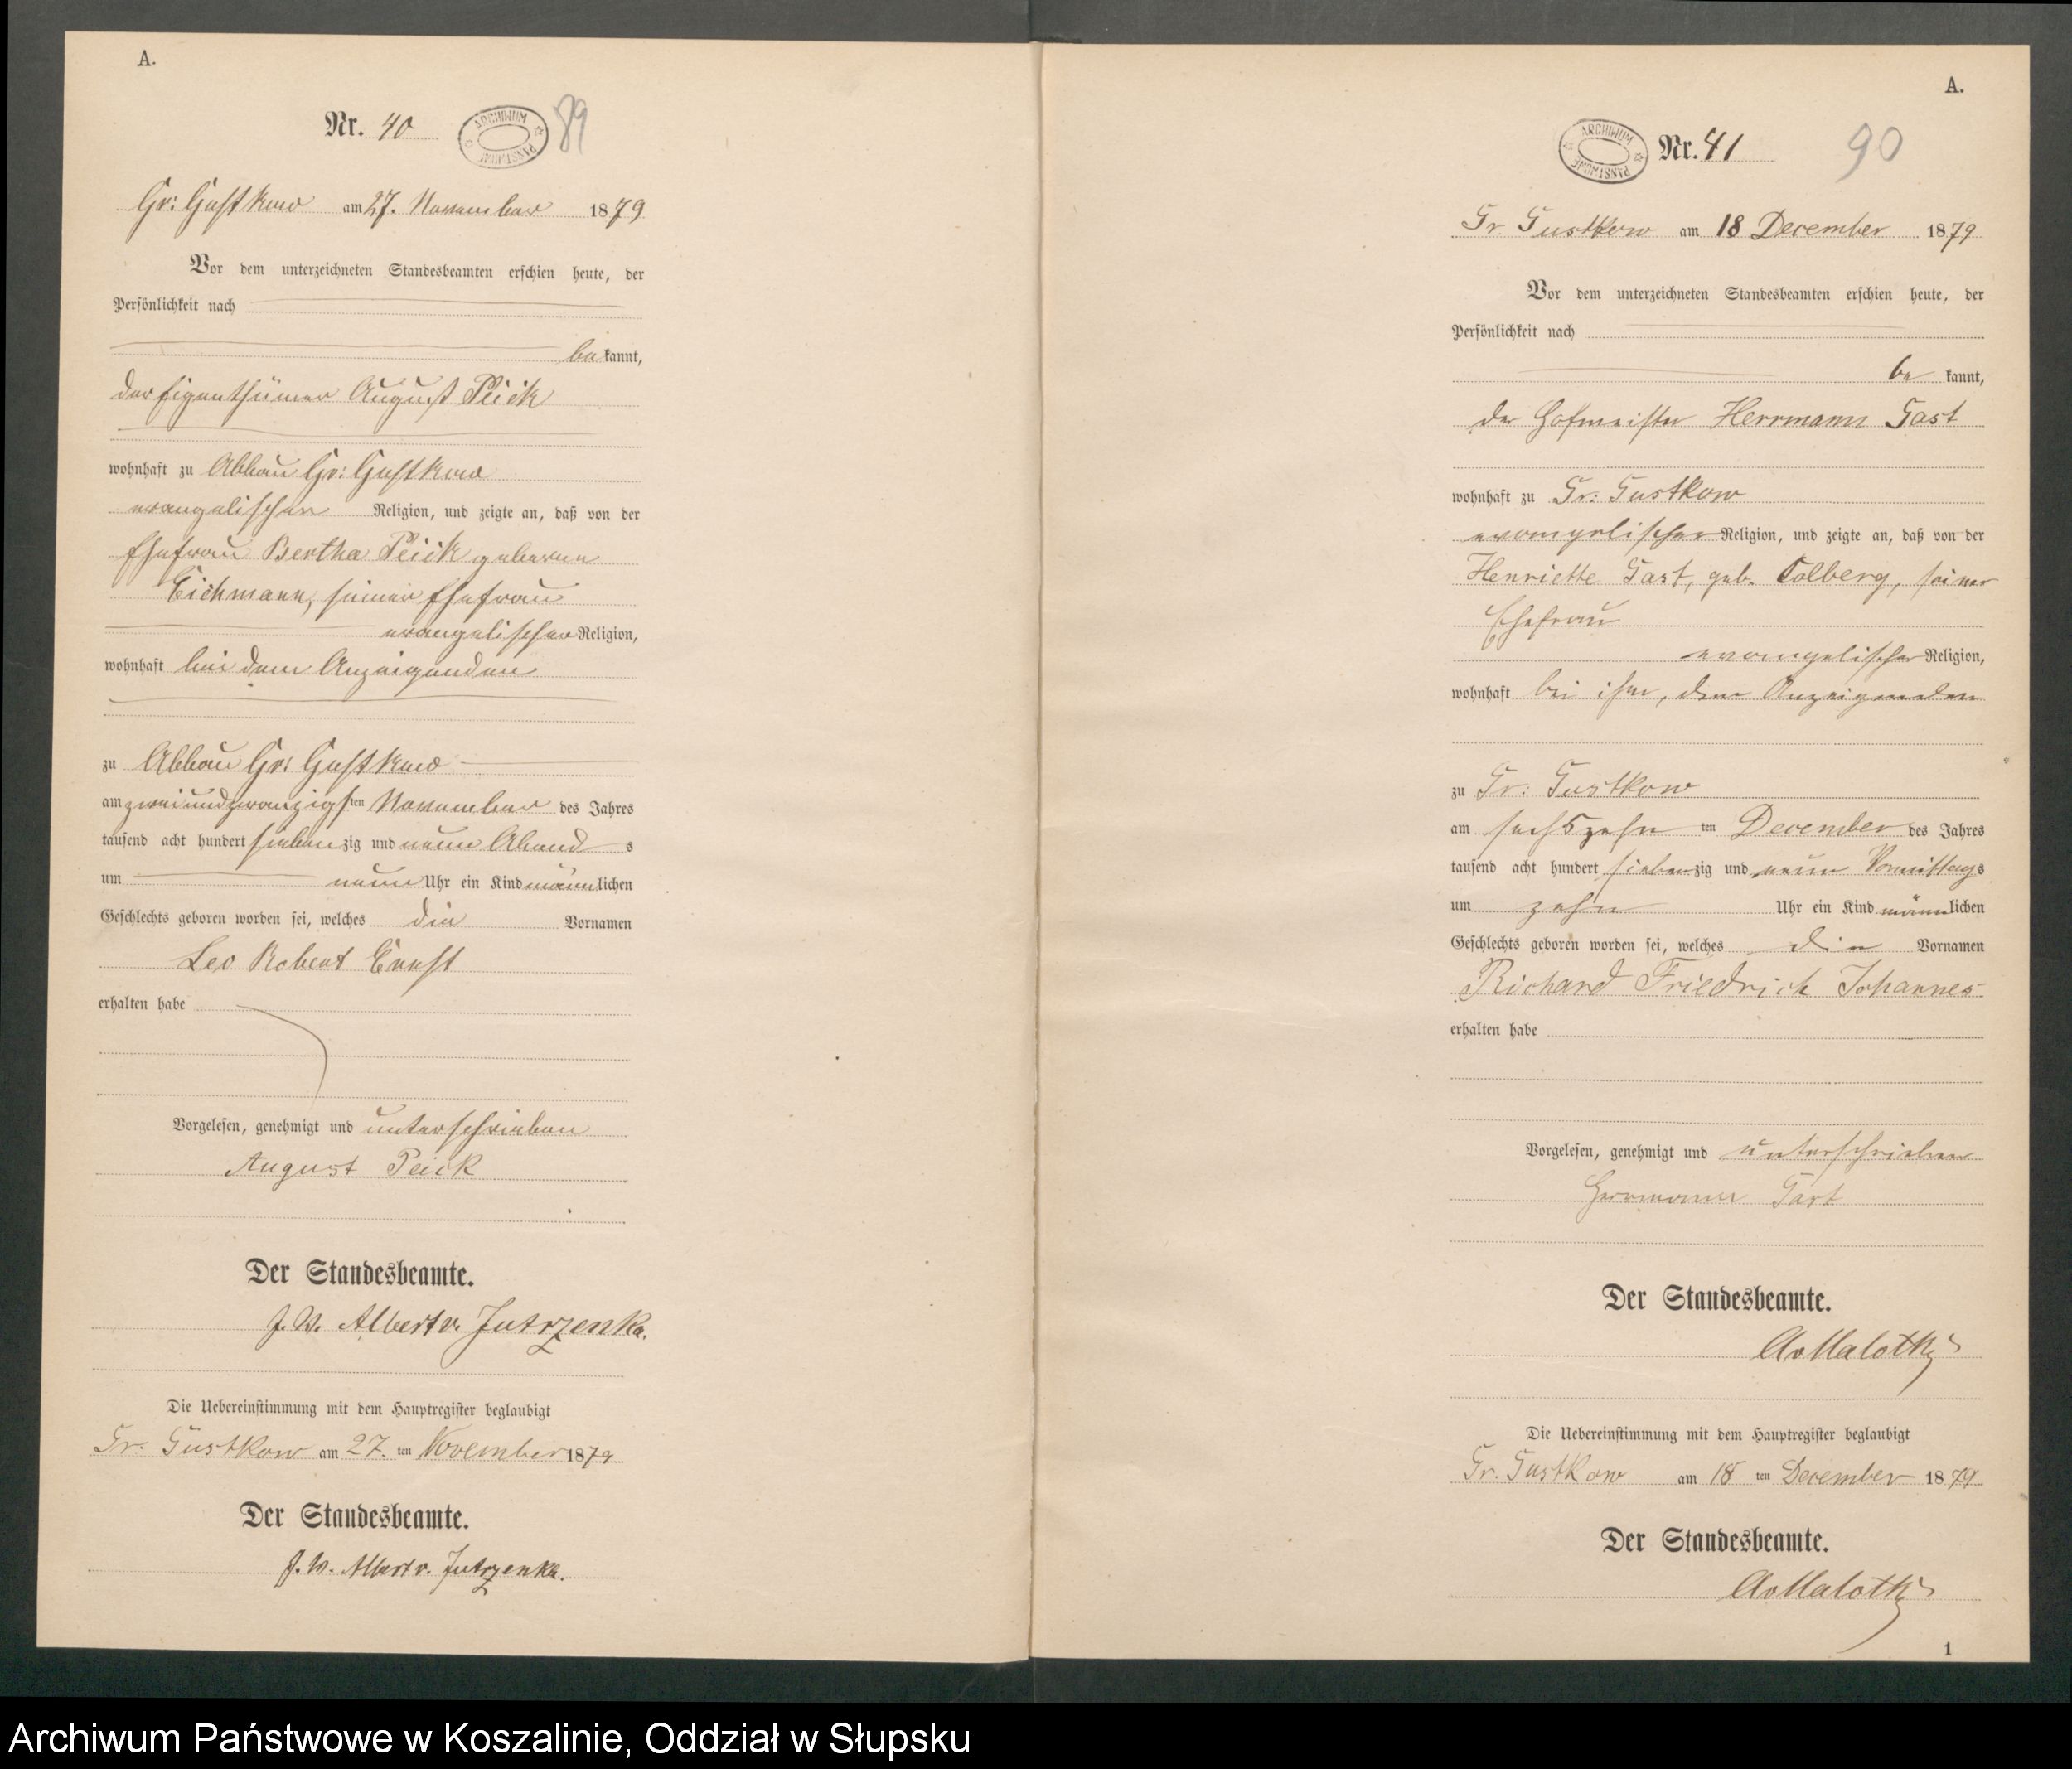 A.
Nr. 40
ARCHIWUM PAŃSTWOWE
89
Gr: Gustkow am 27. November 1879
Vor dem unterzeichneten Standesbeamten erschien heute, der
Persönlichkeit nach
be kannt,
der Eigenthümer August Peick
wohnhaft zu Abbau Gr: Gustkow
evangelischen Religion, und zeigte an, daß von der
Ehefrau Bertha Peick geborne
Eichmann, seiner Ehefrau
evangelischer Religion,
wohnhaft bei dem Anzeigenden
zu Abbau Gr: Gustkow
am zweiundzwanzigsten November des Jahres
tausend acht hundert siebenzig und neun Abends
um neun Uhr ein Kind männlichen
Geschlechts geboren worden sei, welches die Vornamen
Leo Robert Ernst
erhalten habe
Vorgelesen, genehmigt und unterschrieben
August Peick
Der Standesbeamte.
J. V. Albert v. Jutrzenka.
Die Uebereinstimmung mit dem Hauptregister beglaubigt
Gr. Gustkow am 27. ten November 1879
Der Standesbeamte.
J. V. Albert v. Jutrzenka.
A.
ARCHIWUM PAŃSTWOWE
Nr. 41
90
Gr. Gustkow am 18 December 1879
Vor dem unterzeichneten Standesbeamten erschien heute, der
Persönlichkeit nach
be kannt,
der Hofmeister Herrmann Gast
wohnhaft zu Gr. Gustkow
evangelischer Religion, und zeigte an, daß von der
Henriette Gast, geb. Colberg, seiner
Ehefrau
evangelischer Religion,
wohnhaft bei ihm, dem Anzeigenden
zu Gr: Gustkow
am sechszehn ten December des Jahres
tausend acht hundert siebenzig und neun Vormittags
um zehn Uhr ein Kind männlichen
Geschlechts geboren worden sei, welches die Vornamen
Richard Friedrich Johannes
erhalten habe
Vorgelesen, genehmigt und unterschrieben
Herrmann Gast
Der Standesbeamte.
AvMalotky
Die Uebereinstimmung mit dem Hauptregister beglaubigt
Gr. Gustkow am 18 ten December 1879
Der Standesbeamte.
AvMalotky
1
Archiwum Państwowe w Koszalinie, Oddział w Słupsku